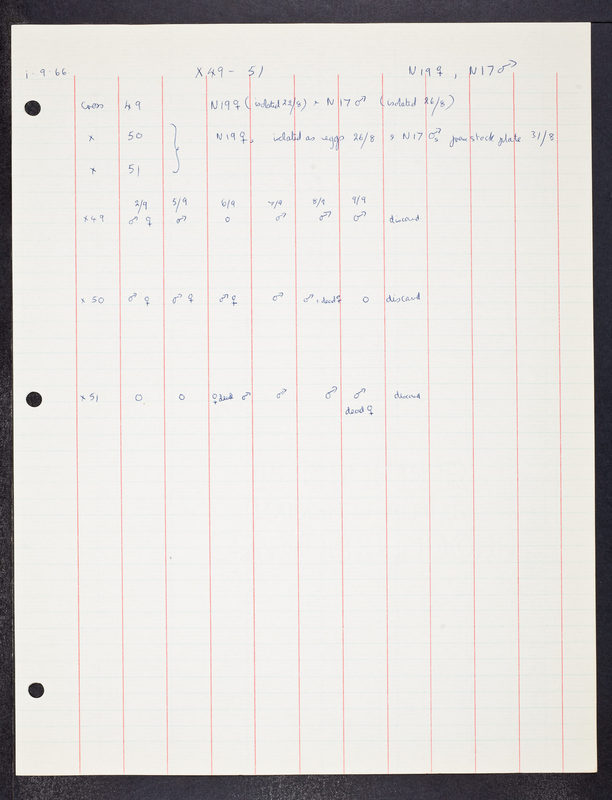 1-9-66 X49-51 N19♀, N17♂
Cross 49 N19♀ (isolated 22/8) × N17♂ (isolated 26/8)
× 50 N19♀s isolated as eggs 26/8 × N17♂s from stock plate 31/8
× 51
2/9 5/9 6/9 7/9 8/9 9/9
×49 ♂ ♀ ♂ 0 ♂ ♂ ♂ discard
×50 ♂ ♀ ♂ ♀ ♂ ♀ ♂ ♂ + dead ♀ 0 discard
×51 0 0 ♀ dead ♂ ♂ ♂ ♂ discard
dead ♀